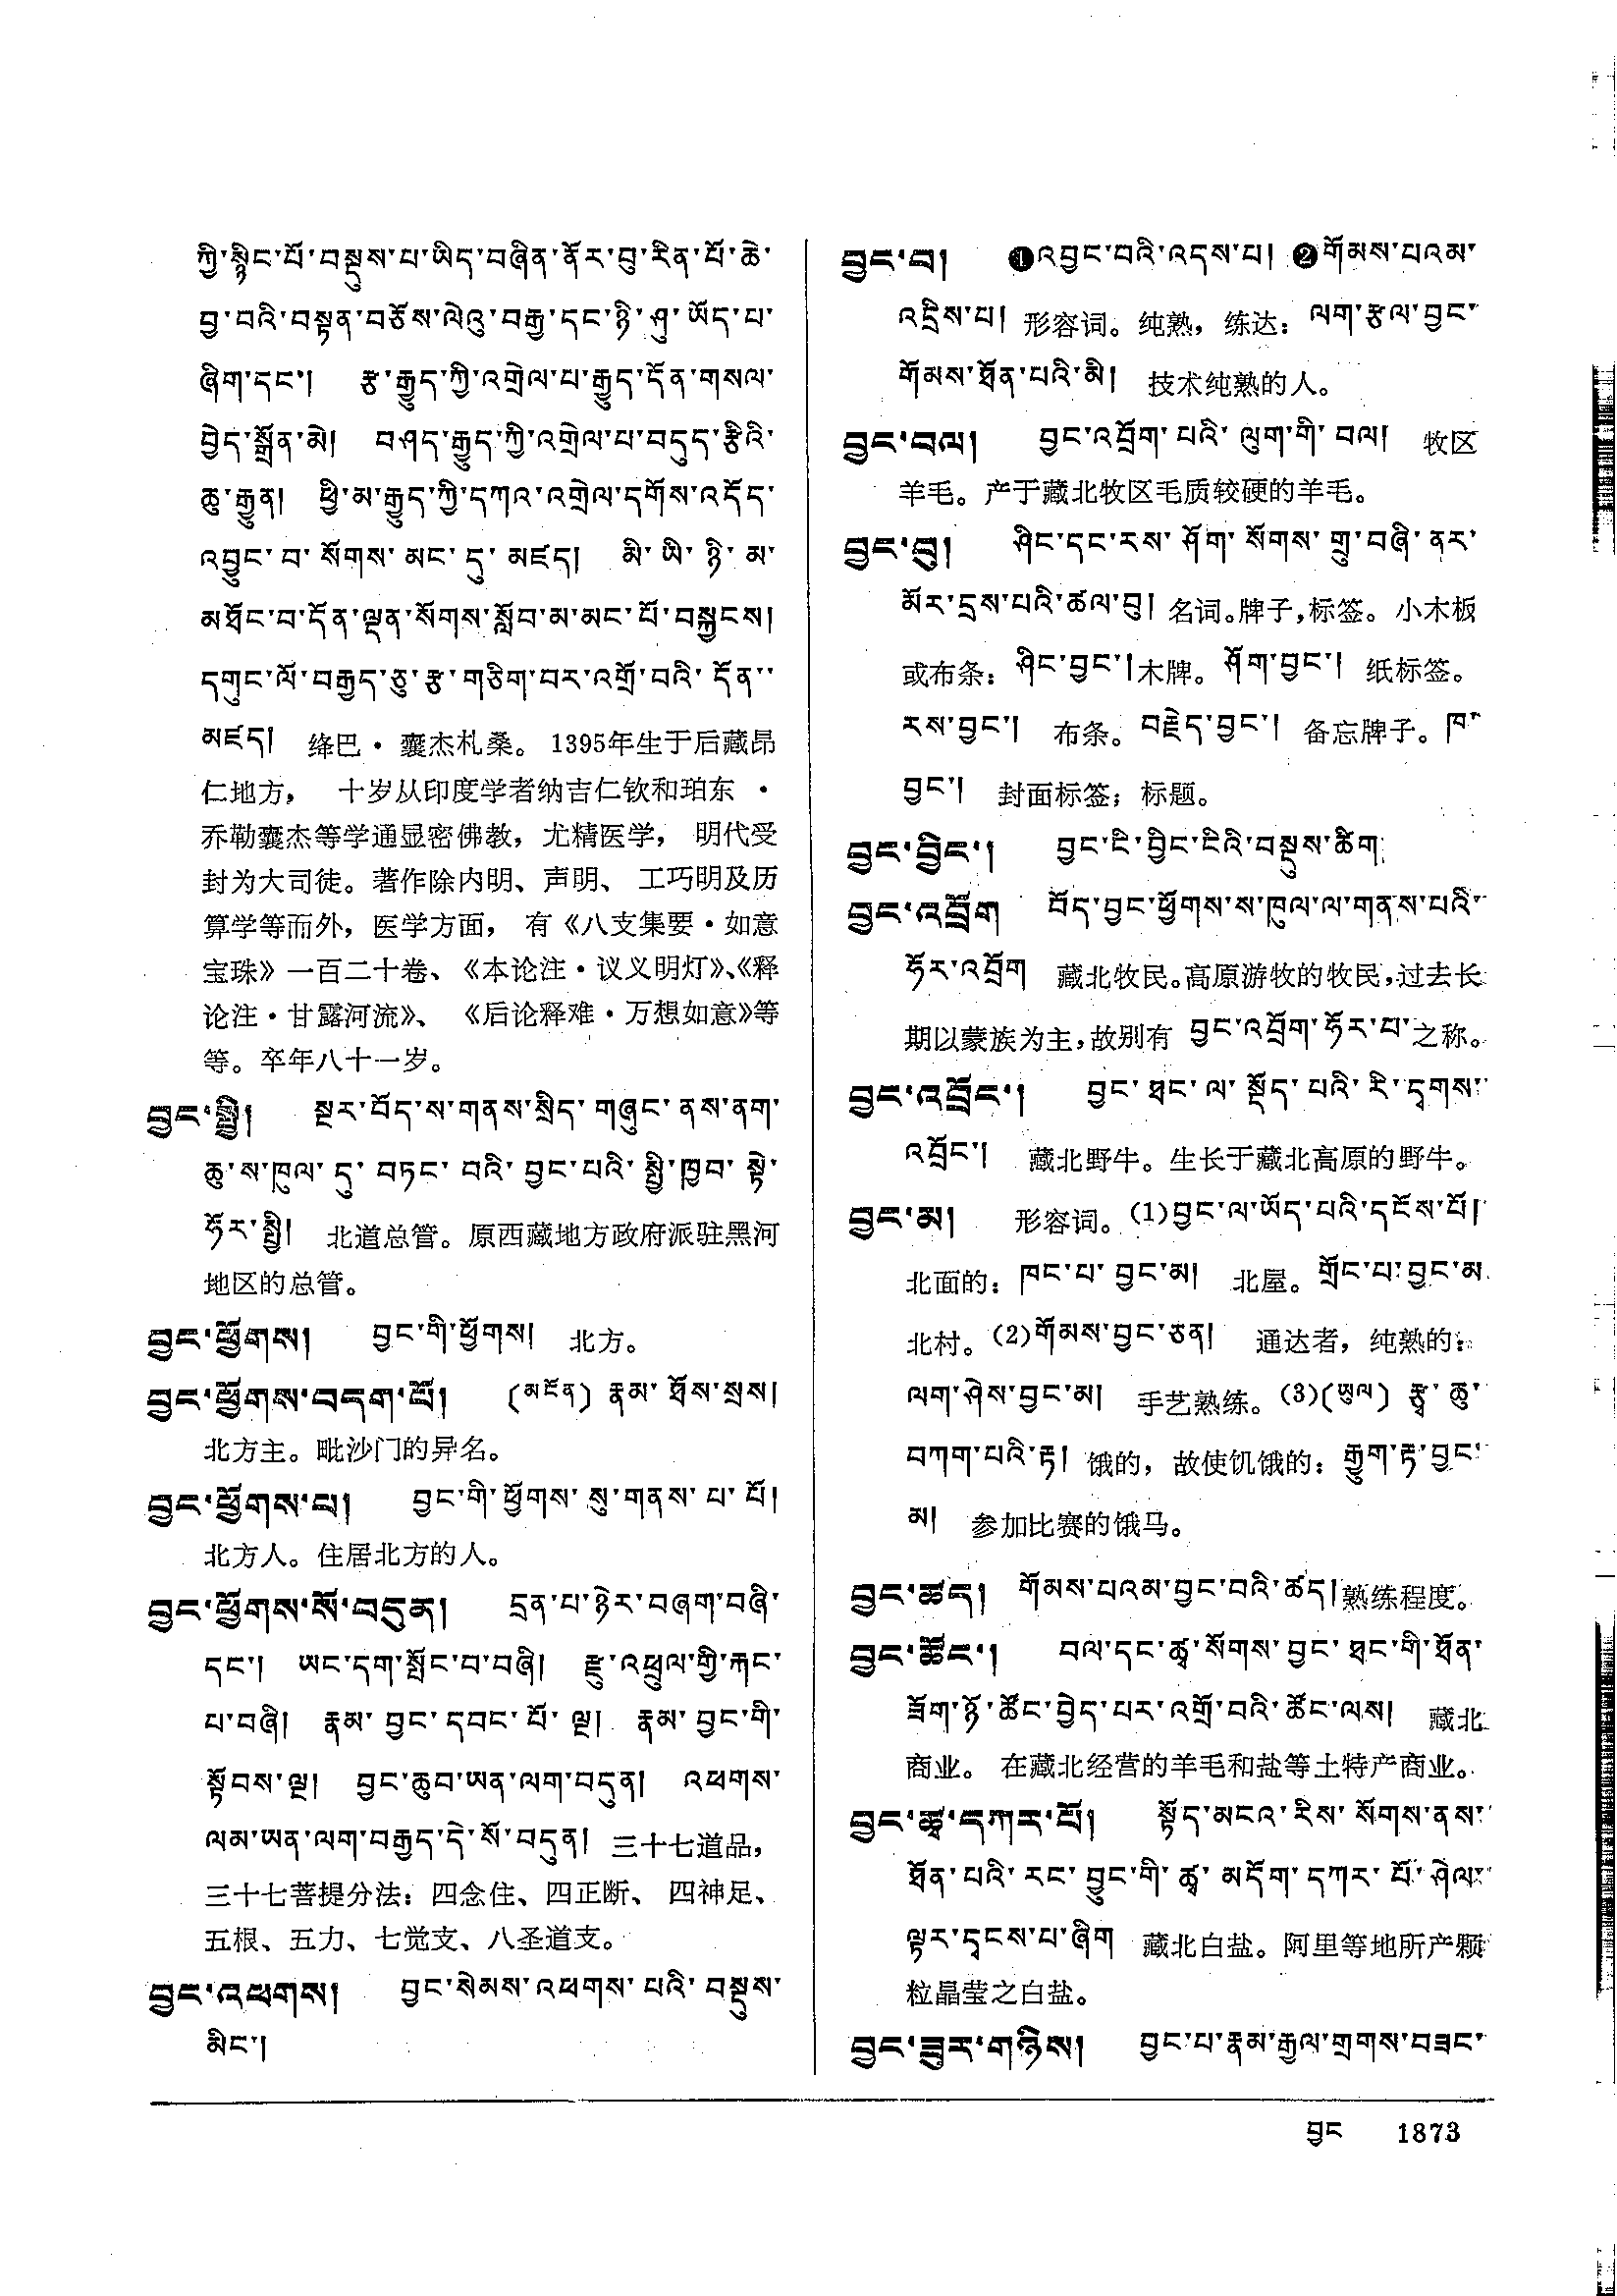 ཀྱི་སྙིང་པོ་བསྡུས་པ་ཡིད་བཞིན་ནོར་བུ་རིན་པོ་ཆེ་
བྱ་བའི་བསྟན་བཅོས་ལེའུ་བརྒྱ་དང་ཉི་ཤུ་ཡོད་པ་
ཞིག་དང་། རྩ་རྒྱུད་ཀྱི་འགྲེལ་པ་རྒྱུད་དོན་གསལ་
བྱེད་སྒྲོན་མེ། བཤད་རྒྱུད་ཀྱི་འགྲེལ་པ་བདུད་རྩིའི་
ཆུ་རྒྱུན། ཕྱི་མ་རྒྱུད་ཀྱི་དཀའ་འགྲེལ་དགོས་འདོད་
འབྱུང་བ་སོགས་མང་དུ་མཛད། མི་ཡི་ཉི་མ་
མཐོང་བ་དོན་ལྡན་སོགས་སློབ་མ་མང་པོ་བསྐྱངས།
དགུང་ལོ་བརྒྱད་ཅུ་རྩ་གཅིག་བར་འགྲོ་བའི་དོན་
མཛད། 绛巴·囊杰札桑。1395年生于后藏昂
仁地方，十岁从印度学者纳吉仁钦和珀东·
乔勒囊杰等学通显密佛教，尤精医学，明代受
封为大司徒。著作除内明、声明、工巧明及历
算学等而外，医学方面，有《八支集要·如意
宝珠》一百二十卷、《本论注·议义明灯》、《释
论注·甘露河流》、《后论释难·万想如意》等
等。卒年八十一岁。
བྱང་སྤྱི། སྔར་བོད་ས་གནས་སྲིད་གཞུང་ནས་ནག་
ཆུ་ས་ཁུལ་དུ་བཏང་བའི་བྱང་པའི་སྤྱི་ཁྱབ་སྟེ་
ཧོར་སྤྱི། 北道总管。原西藏地方政府派驻黑河
地区的总管。
བྱང་ཕྱོགས། བྱང་གི་ཕྱོགས། 北方。
བྱང་ཕྱོགས་བདག་པོ། (མངོན) རྣམ་ཐོས་སྲས།
北方主。毗沙门的异名。
བྱང་ཕྱོགས་པ། བྱང་གི་ཕྱོགས་སུ་གནས་པ་པོ།
北方人。住居北方的人。
བྱང་ཕྱོགས་སོ་བདུན། དྲན་པ་ཉེར་བཞག་བཞི་
དང་། ཡང་དག་སྤོང་བ་བཞི། རྫུ་འཕྲུལ་གྱི་རྐང་
པ་བཞི། རྣམ་བྱང་དབང་པོ་ལྔ། རྣམ་བྱང་གི་
སྟོབས་ལྔ། བྱང་ཆུབ་ཡན་ལག་བདུན། འཕགས་
ལམ་ཡན་ལག་བརྒྱད་དེ་སོ་བདུན། 三十七道品，
三十七菩提分法：四念住、四正断、四神足、
五根、五力、七觉支、八圣道支。
བྱང་འཕགས། བྱང་སེམས་འཕགས་པའི་བསྡུས་
མིང་།
བྱང་བ། ❶འབྱང་བའི་འདས་པ། ❷གོམས་པའམ་
འདྲིས་པ། 形容词。纯熟，练达：ལག་རྩལ་བྱང་
གོམས་ཐོན་པའི་མི། 技术纯熟的人。
བྱང་བལ། བྱང་འབྲོག་པའི་ལུག་གི་བལ། 牧区
羊毛。产于藏北牧区毛质较硬的羊毛。
བྱང་བུ། ཤིང་དང་རས་ཤོག་སོགས་གྲུ་བཞི་ནར་
མོར་དྲས་པའི་ཚལ་བུ། 名词。牌子，标签。小木板
或布条：ཤིང་བྱང་།木牌。ཤོག་བྱང་། 纸标签。
རས་བྱང་། 布条。བརྗེད་བྱང་། 备忘牌子。ཁ་
བྱང་། 封面标签；标题。
བྱང་བྱིང་། བྱང་ངི་བྱིང་ངིའི་བསྡུས་ཚིག
བྱང་འབྲོག བོད་བྱང་ཕྱོགས་ས་ཁུལ་ལ་གནས་པའི་
ཧོར་འབྲོག 藏北牧民。高原游牧的牧民，过去长
期以蒙族为主，故别有 བྱང་འབྲོག་ཧོར་པ་之称。
བྱང་འབྲོང་། བྱང་ཐང་ལ་སྡོད་པའི་རི་དྭགས་
འབྲོང་། 藏北野牛。生长于藏北高原的野牛。
བྱང་མ། 形容词。(1)བྱང་ལ་ཡོད་པའི་དངོས་པོ།
北面的：ཁང་པ་བྱང་མ། 北屋。གྲོང་པ་བྱང་མ
北村。(2)གོམས་བྱང་ཅན། 通达者，纯熟的：
ལག་ཤེས་བྱང་མ། 手艺熟练。(3)(ཡུལ) རྩྭ་ཆུ་
བཀག་པའི་རྟ། 饿的，故使饥饿的：རྒྱུག་རྟ་བྱང་
མ། 参加比赛的饿马。
བྱང་ཚད། གོམས་པའམ་བྱང་བའི་ཚད།熟练程度。
བྱང་ཚོང་། བལ་དང་ཚྭ་སོགས་བྱང་ཐང་གི་ཐོན་
ཟོག་ཉོ་ཚོང་བྱེད་པར་འགྲོ་བའི་ཚོང་ལས། 藏北
商业。在藏北经营的羊毛和盐等土特产商业。
བྱང་ཚྭ་དཀར་པོ། སྟོད་མངའ་རིས་སོགས་ནས་
ཐོན་པའི་རང་བྱུང་གི་ཚྭ་མདོག་དཀར་པོ་ཤེལ་
ལྟར་དྭངས་པ་ཞིག 藏北白盐。阿里等地所产颗
粒晶莹之白盐。
བྱང་ཟུར་གཉིས། བྱང་པ་རྣམ་རྒྱལ་གྲགས་བཟང་
བྱང 1873